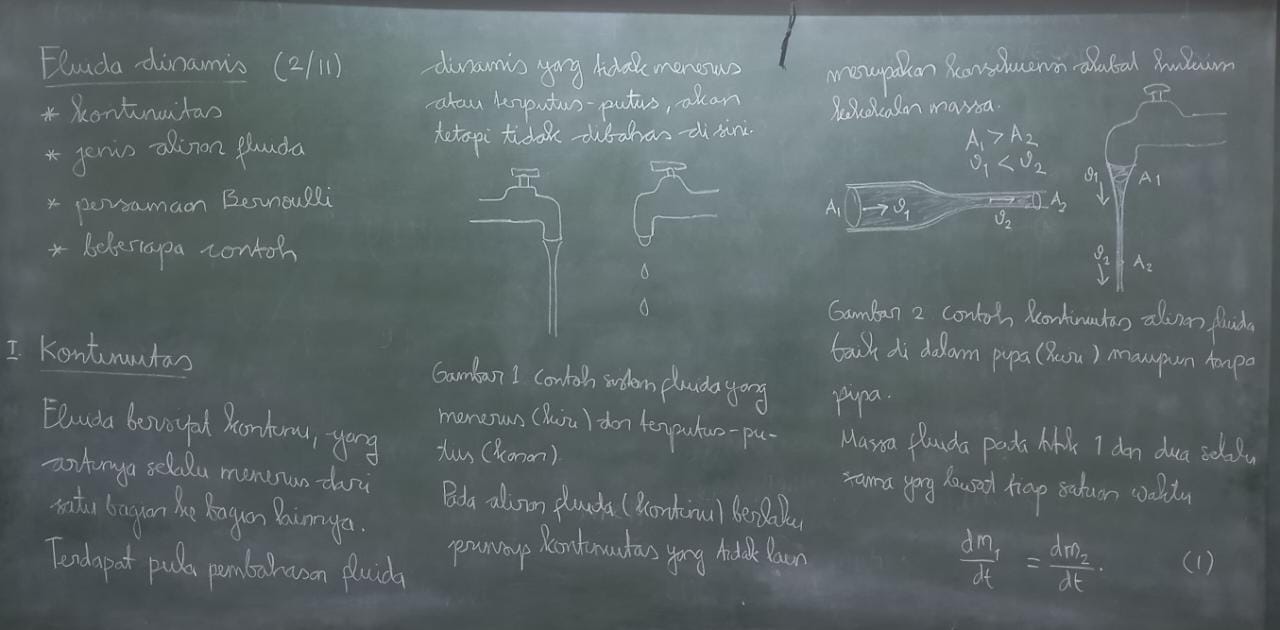 Fluida dinamis (2/11)
* kontinuitas
* jenis aliran fluida
* persamaan Bernoulli
* beberapa contoh
I. Kontinuitas
Fluida bersifat kontinu, yang
artinya selalu menerus dari
satu bagian ke bagian lainnya.
Terdapat pula pembahasan fluida
dinamis yang tidak menerus
atau terputus-putus, akan
tetapi tidak dibahas di sini.
Gambar 1 Contoh sistem fluida yang
menerus (kiri) dan terputus-pu-
tus (kanan)
Pada aliran fluida (kontinu) berlaku
prinsip kontinuitas yang tidak lain
merupakan konsekuensi akibat hukum
kekekalan massa.
A₁ > A₂
v₁ < v₂
A₁ v₁ v₂ A₂
v₁ A₁
v₂ A₂
Gambar 2 contoh kontinuitas aliran fluida
baik di dalam pipa (kiri) maupun tanpa
pipa.
Massa fluida pada titik 1 dan dua selalu
sama yang lewat tiap satuan waktu
dm₁/dt = dm₂/dt. (1)